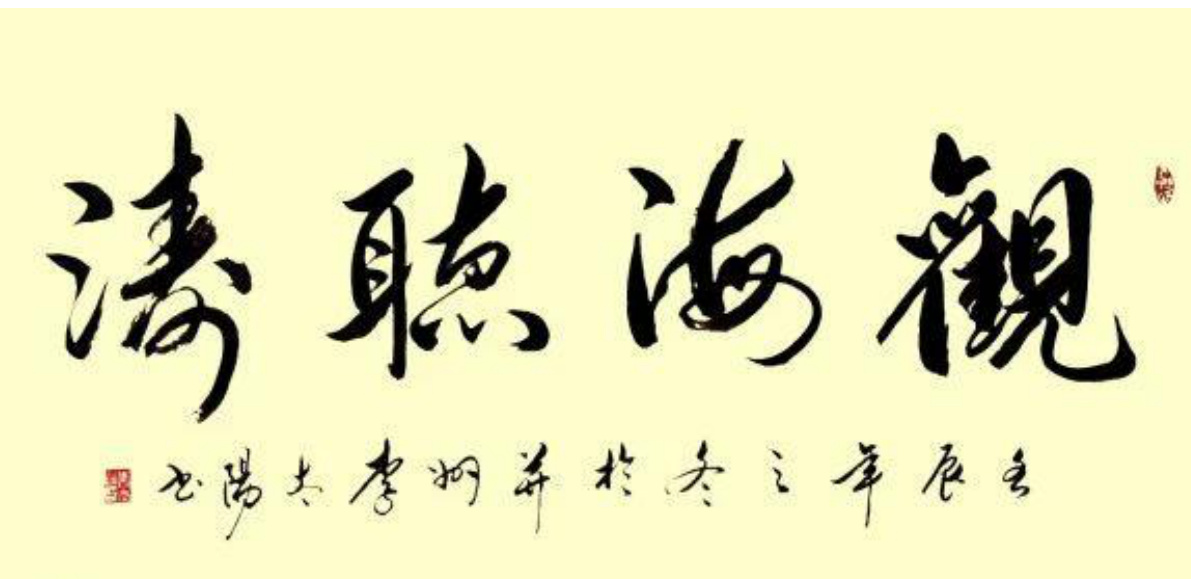 觀海聽濤
壬辰年之冬於并州李太陽书